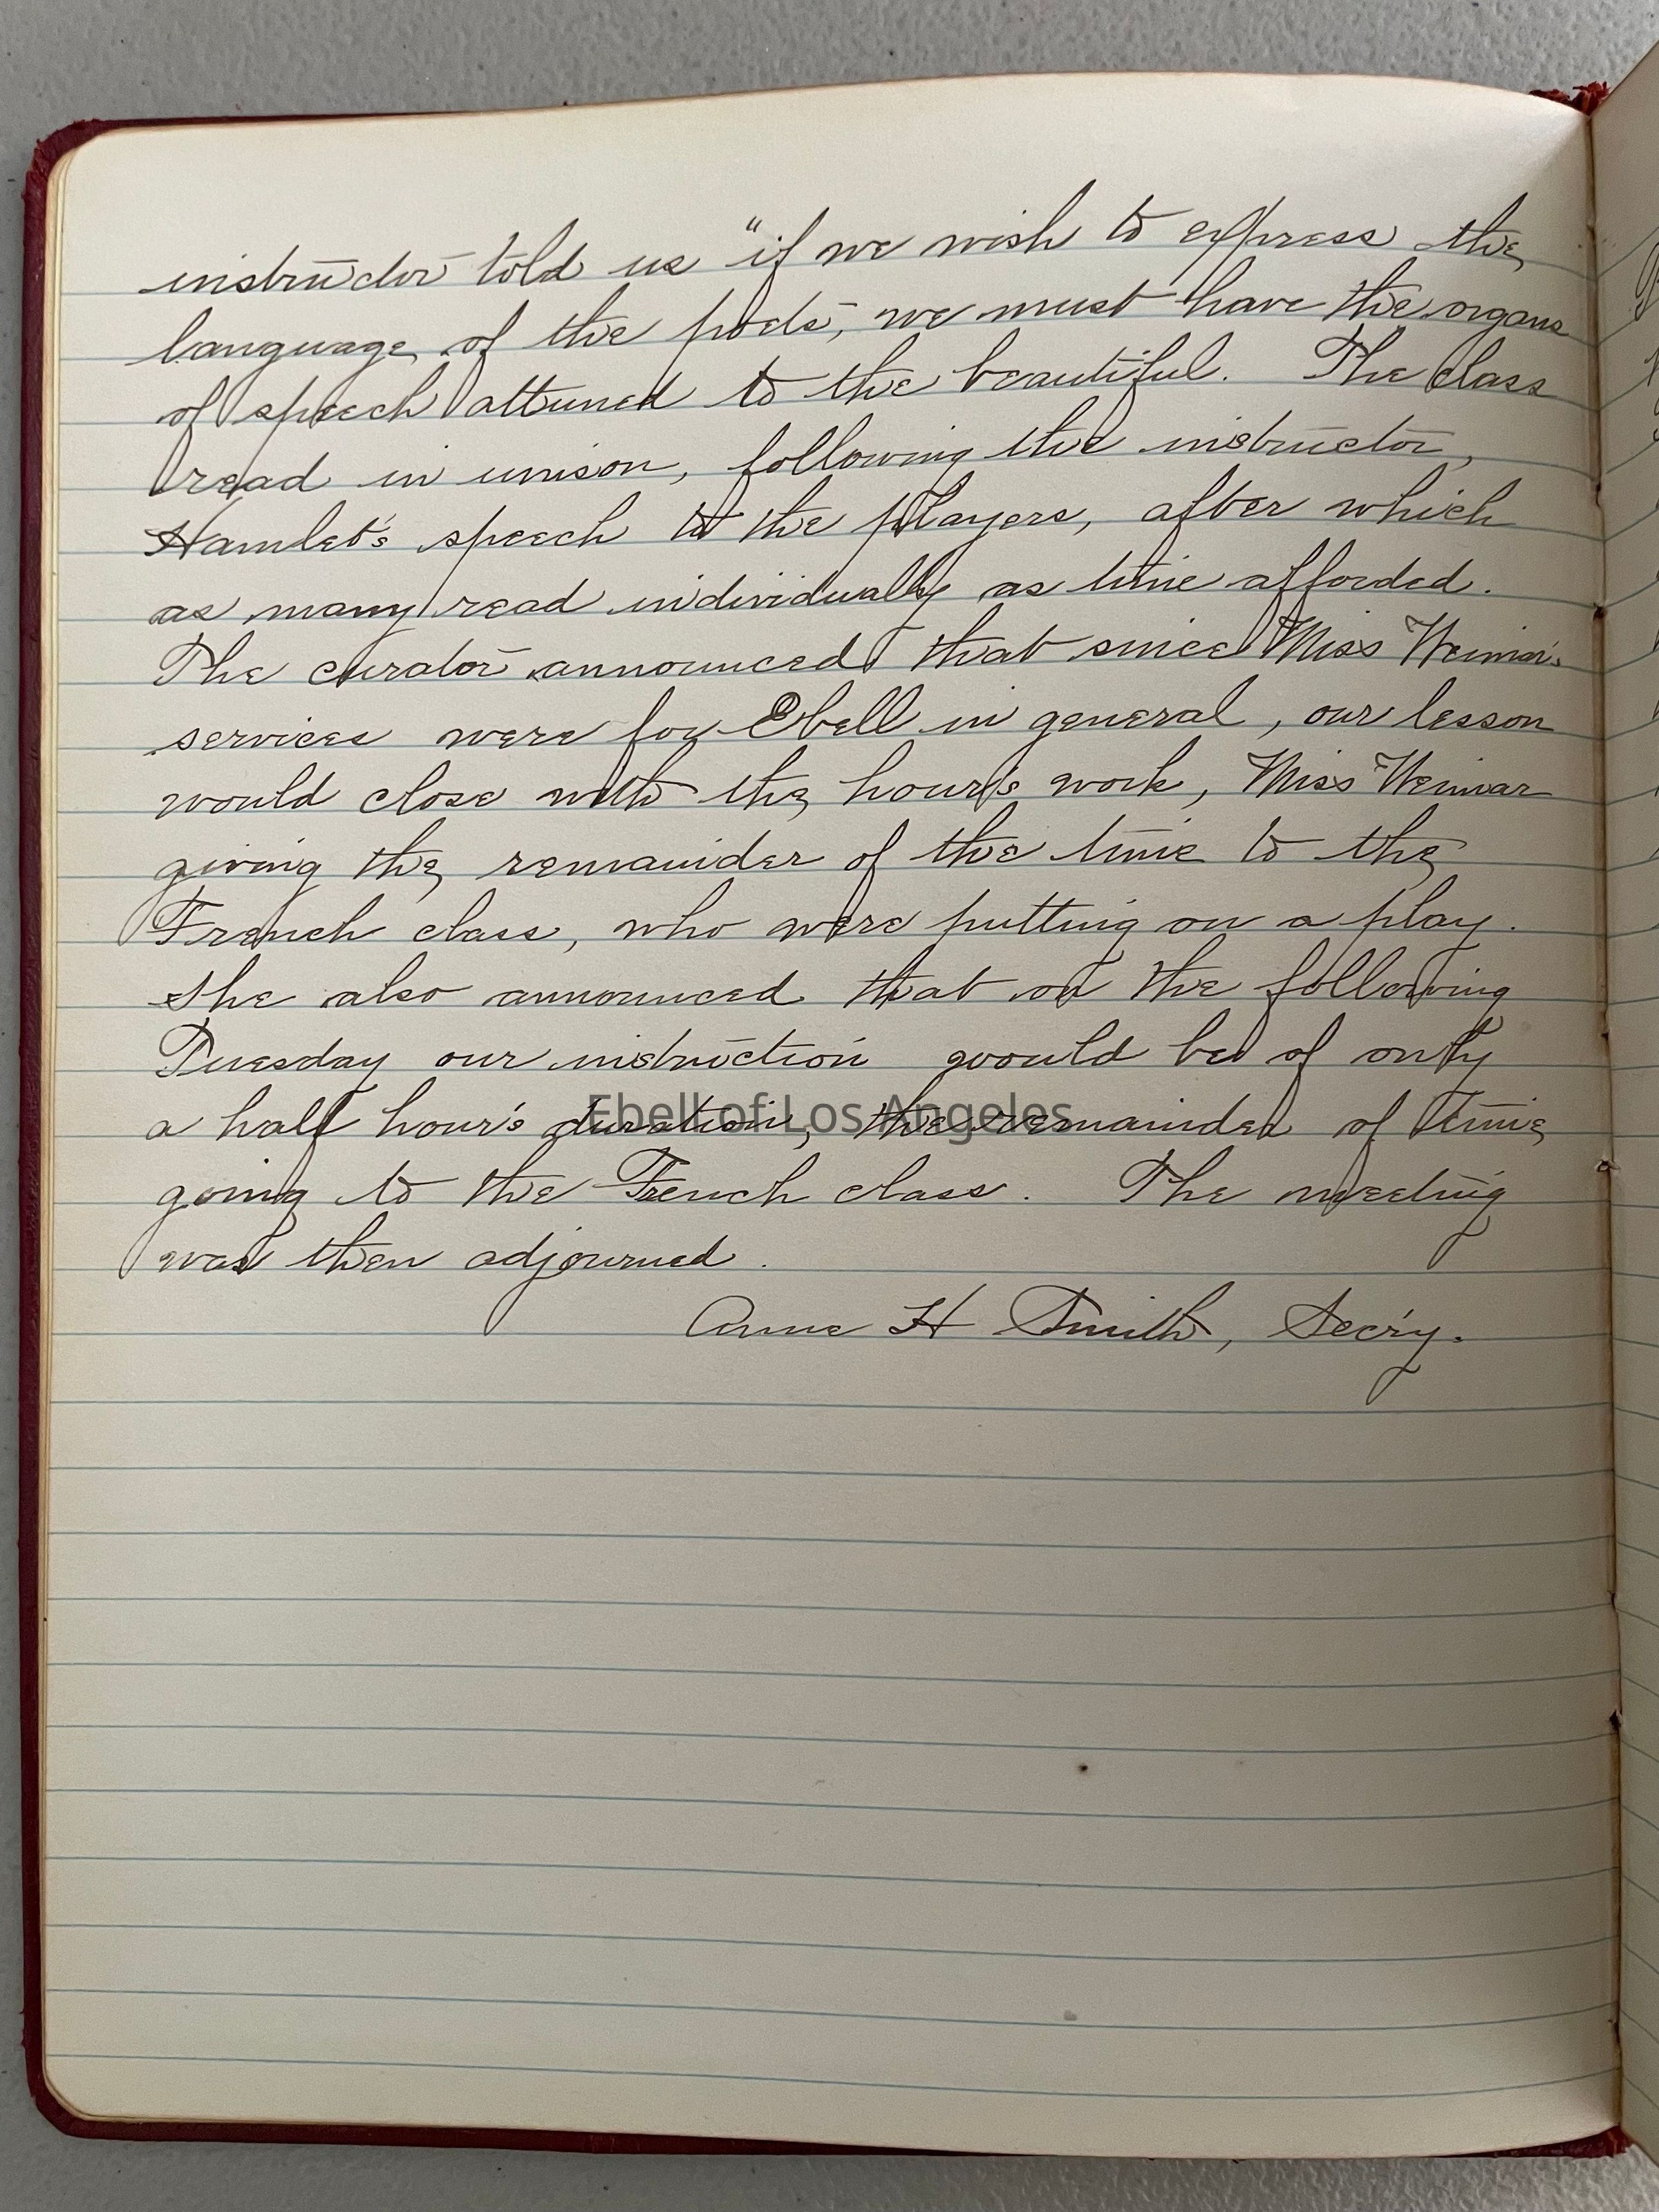 instructor told us "if we wish to express the
language of the poets, we must have the organs
of speech attuned to the beautiful. The class
read in unison, following the instructor,
Hamlet's speech to the players, after which
as many read individually as time afforded.
The curator announced that since Miss Weimar's
services were for Ebell in general, our lesson
would close with the hour's work, Miss Weimar
giving the remainder of the time to the
French class, who were putting on a play.
She also announced that on the following
Tuesday our instruction would be of only
a half hour's duration, the remainder of time
going to the French class. The meeting
was then adjourned.
Anne H Smith, Sec'y.
Ebell of Los Angeles